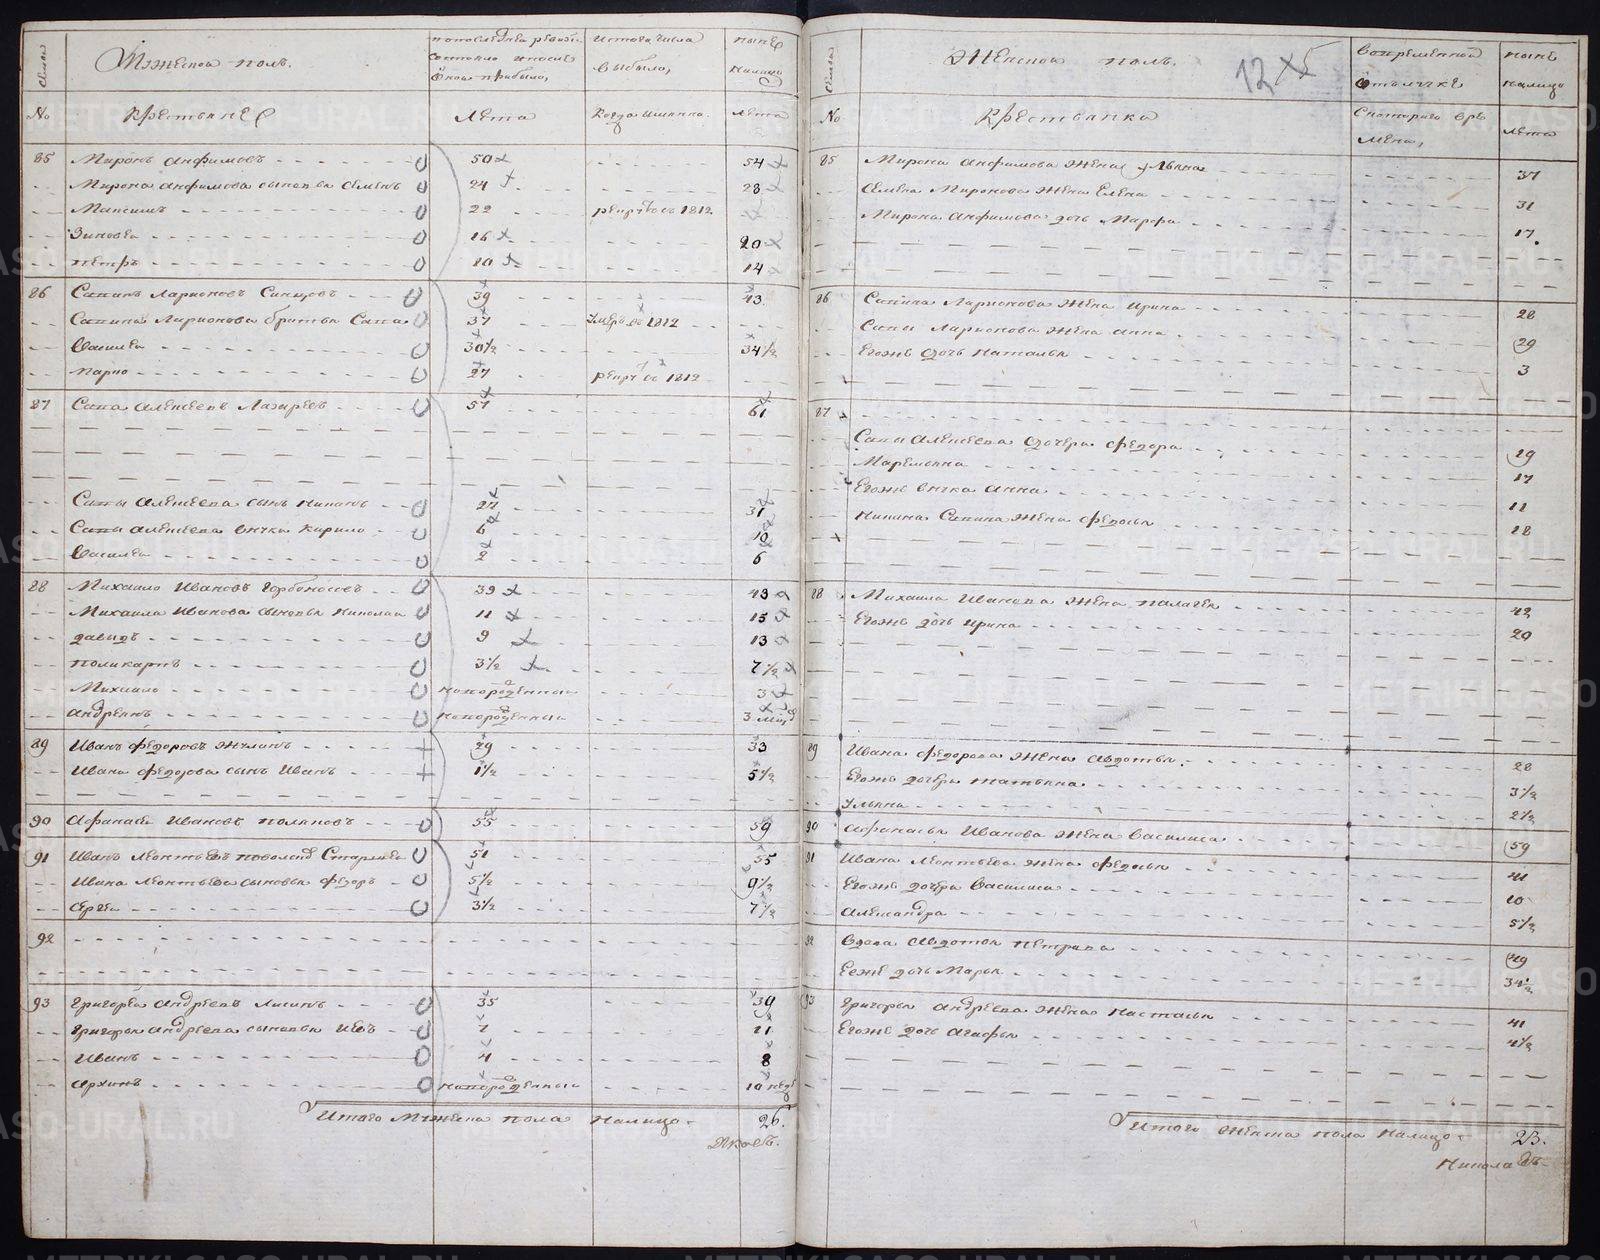 Семьи
Мужескои полъ.
попоследнеи ревизіи состояло ипосле оной прибыло,
Истого числа выбыло,
ныне налицо
№
Крестьяне
Лета
Когда имянно.
Лета
85 Миронъ Анфимовъ 50 54
Мирона Анфимова сыновья Семенъ 24 28
Максимъ 22 рекрут въ 1812
Зиновеи 16 20
Петръ 10 14
86 Сапинъ Ларионовъ 39 43
Ларионова братья Сапа 37 Умре въ 1812
Василеи 30½ 34½
Карпо 27 рекрут въ 1812
87 Сапа Алексеевъ Лазаревъ 57 61
Сапы Алексеева сынъ 27 31
Сапы Алексеева внуки Кирило 6 10
Василеи 2 6
88 Михаило Ивановъ Горбоносовъ 39 43
Михаила Иванова сыновья Николаи 11 15
Давыдъ 9 13
Поликарпъ 3½ 7½
Михаило новорожденныи 3
Андреянъ новорожденныи 3 мца
89 Иванъ Федоровъ 29 33
Ивана Федорова сынъ Иванъ 1½ 5½
90 Афанасеи Ивановъ Поляковъ 55 59
91 Иванъ Леонтьевъ 51 55
Ивана Леонтьева сыновья Федоръ 5½ 9½
Сергеи 3½ 7½
92
93 Григореи Андреевъ 35 39
Григорья Андреева сыновья 7 11
Иванъ 4 8
Архипъ новорожденныи 10 недель
Итого Мужеска пола налицо 26.
Семьи
Женскои полъ.
12 х 5
Вовременной отлучке
ныне налицо
№
Крестьянка
Скоторого времени,
Лета
85 Мирона Анфимова жена Ульяна 37
Семена Миронова жена Елена 31
Мирона Анфимова дочь Марфа 17
86 Ларионова жена Ирина 28
Сапы Ларионова жена Анна 29
Егоже дочь Наталья 3
87
Сапы Алексеева дочери Федора 29
Маремьяна 17
Егоже внука Анна 11
Сапина жена Федосья 28
88 Михаила Иванова жена Палагея 42
Егоже дочь Ирина 20
89 Ивана Федорова жена Авдотья 28
Егоже дочери Татьяна 3½
Ульяна 2½
90 Афанасья Иванова жена Василиса 59
91 Ивана Леонтьева жена Федосья 41
Егоже дочери Василиса 10
Александра 5½
92 Вдова Авдотья Петрова 49
Ееже дочь Марья 34½
93 Григорья Андреева жена Настасья 41
Егоже дочь Агафья 4½
Итого Женска пола налицо 23.